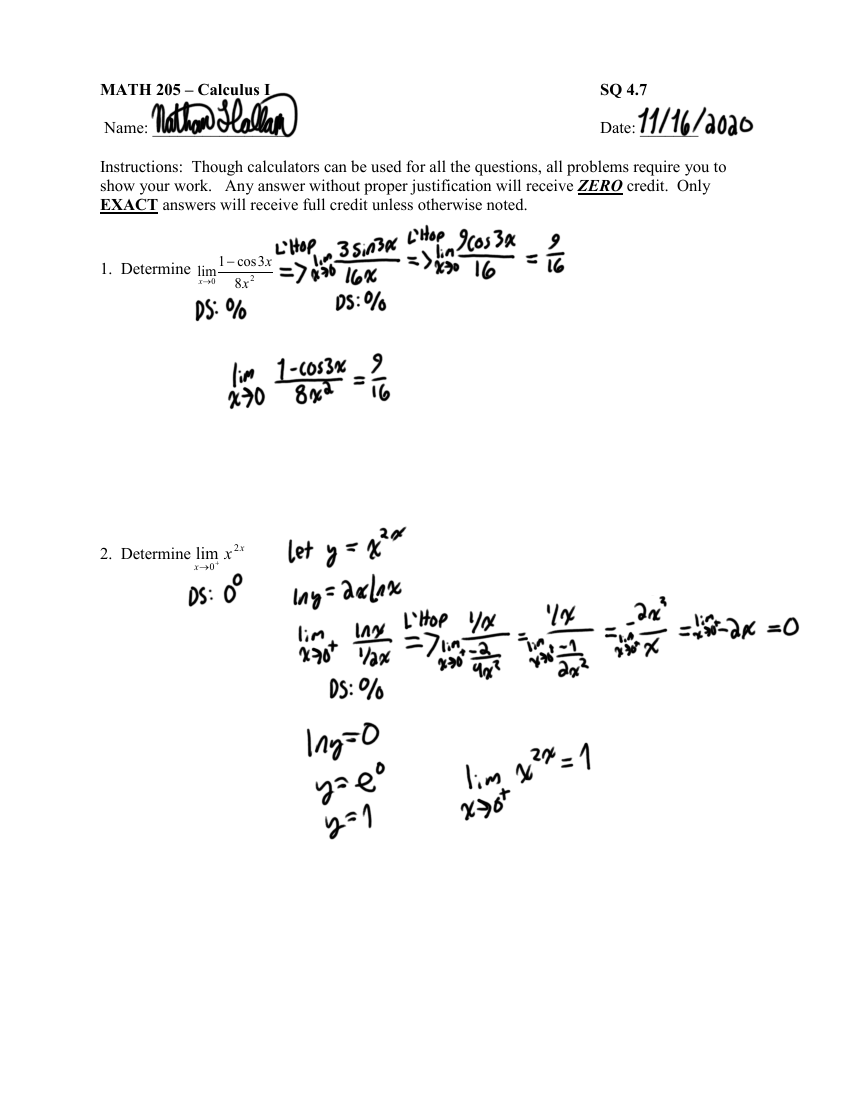 MATH 205 – Calculus I SQ 4.7
Name: Nathan Hallam Date: 11/16/2020
Instructions: Though calculators can be used for all the questions, all problems require you to
show your work. Any answer without proper justification will receive ZERO credit. Only
EXACT answers will receive full credit unless otherwise noted.
1. Determine lim x→0 (1 − cos 3x)/(8x²) L'Hop => lim x→0 (3 sin 3x)/(16x) L'Hop => lim x→0 (9cos 3x)/16 = 9/16
DS: 0/0 DS: 0/0
lim x→0 (1-cos3x)/(8x²) = 9/16
2. Determine lim x→0⁺ x^(2x) let y = x^(2x)
DS: 0⁰ lny = 2x lnx
lim x→0⁺ (lnx)/(1/2x) L'Hop => lim x→0⁺ (1/x)/(-2/4x²) = lim x→0⁺ (1/x)/(-1/2x²) = lim x→0⁺ (-2x²)/x = lim x→0⁺ -2x = 0
DS: %
lny=0
y=e⁰ lim x→0⁺ x^(2x) = 1
y=1